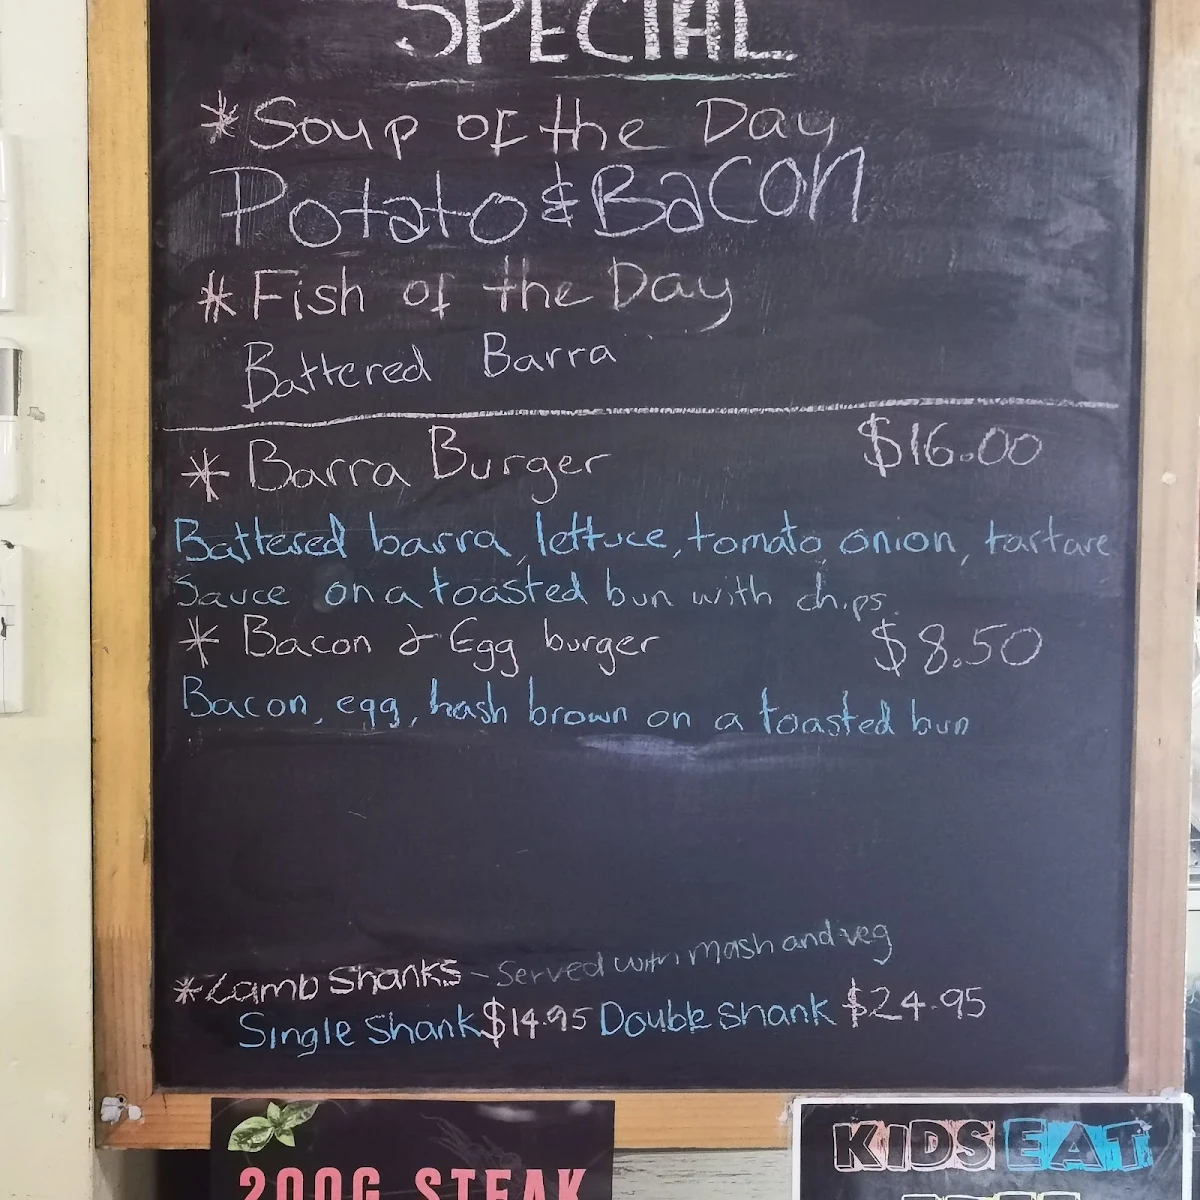 SPECIAL
* Soup of the Day
Potato & Bacon
* Fish of the Day
Battered Barra
* Barra Burger $16.00
Battered barra, lettuce, tomato, onion, tartare
Sauce on a toasted bun with chips.
* Bacon & Egg burger $8.50
Bacon, egg, hash brown on a toasted bun
* Lamb Shanks - Served with mash and veg
Single Shank $14.95 Double Shank $24.95
200G STEAK
KIDS EAT